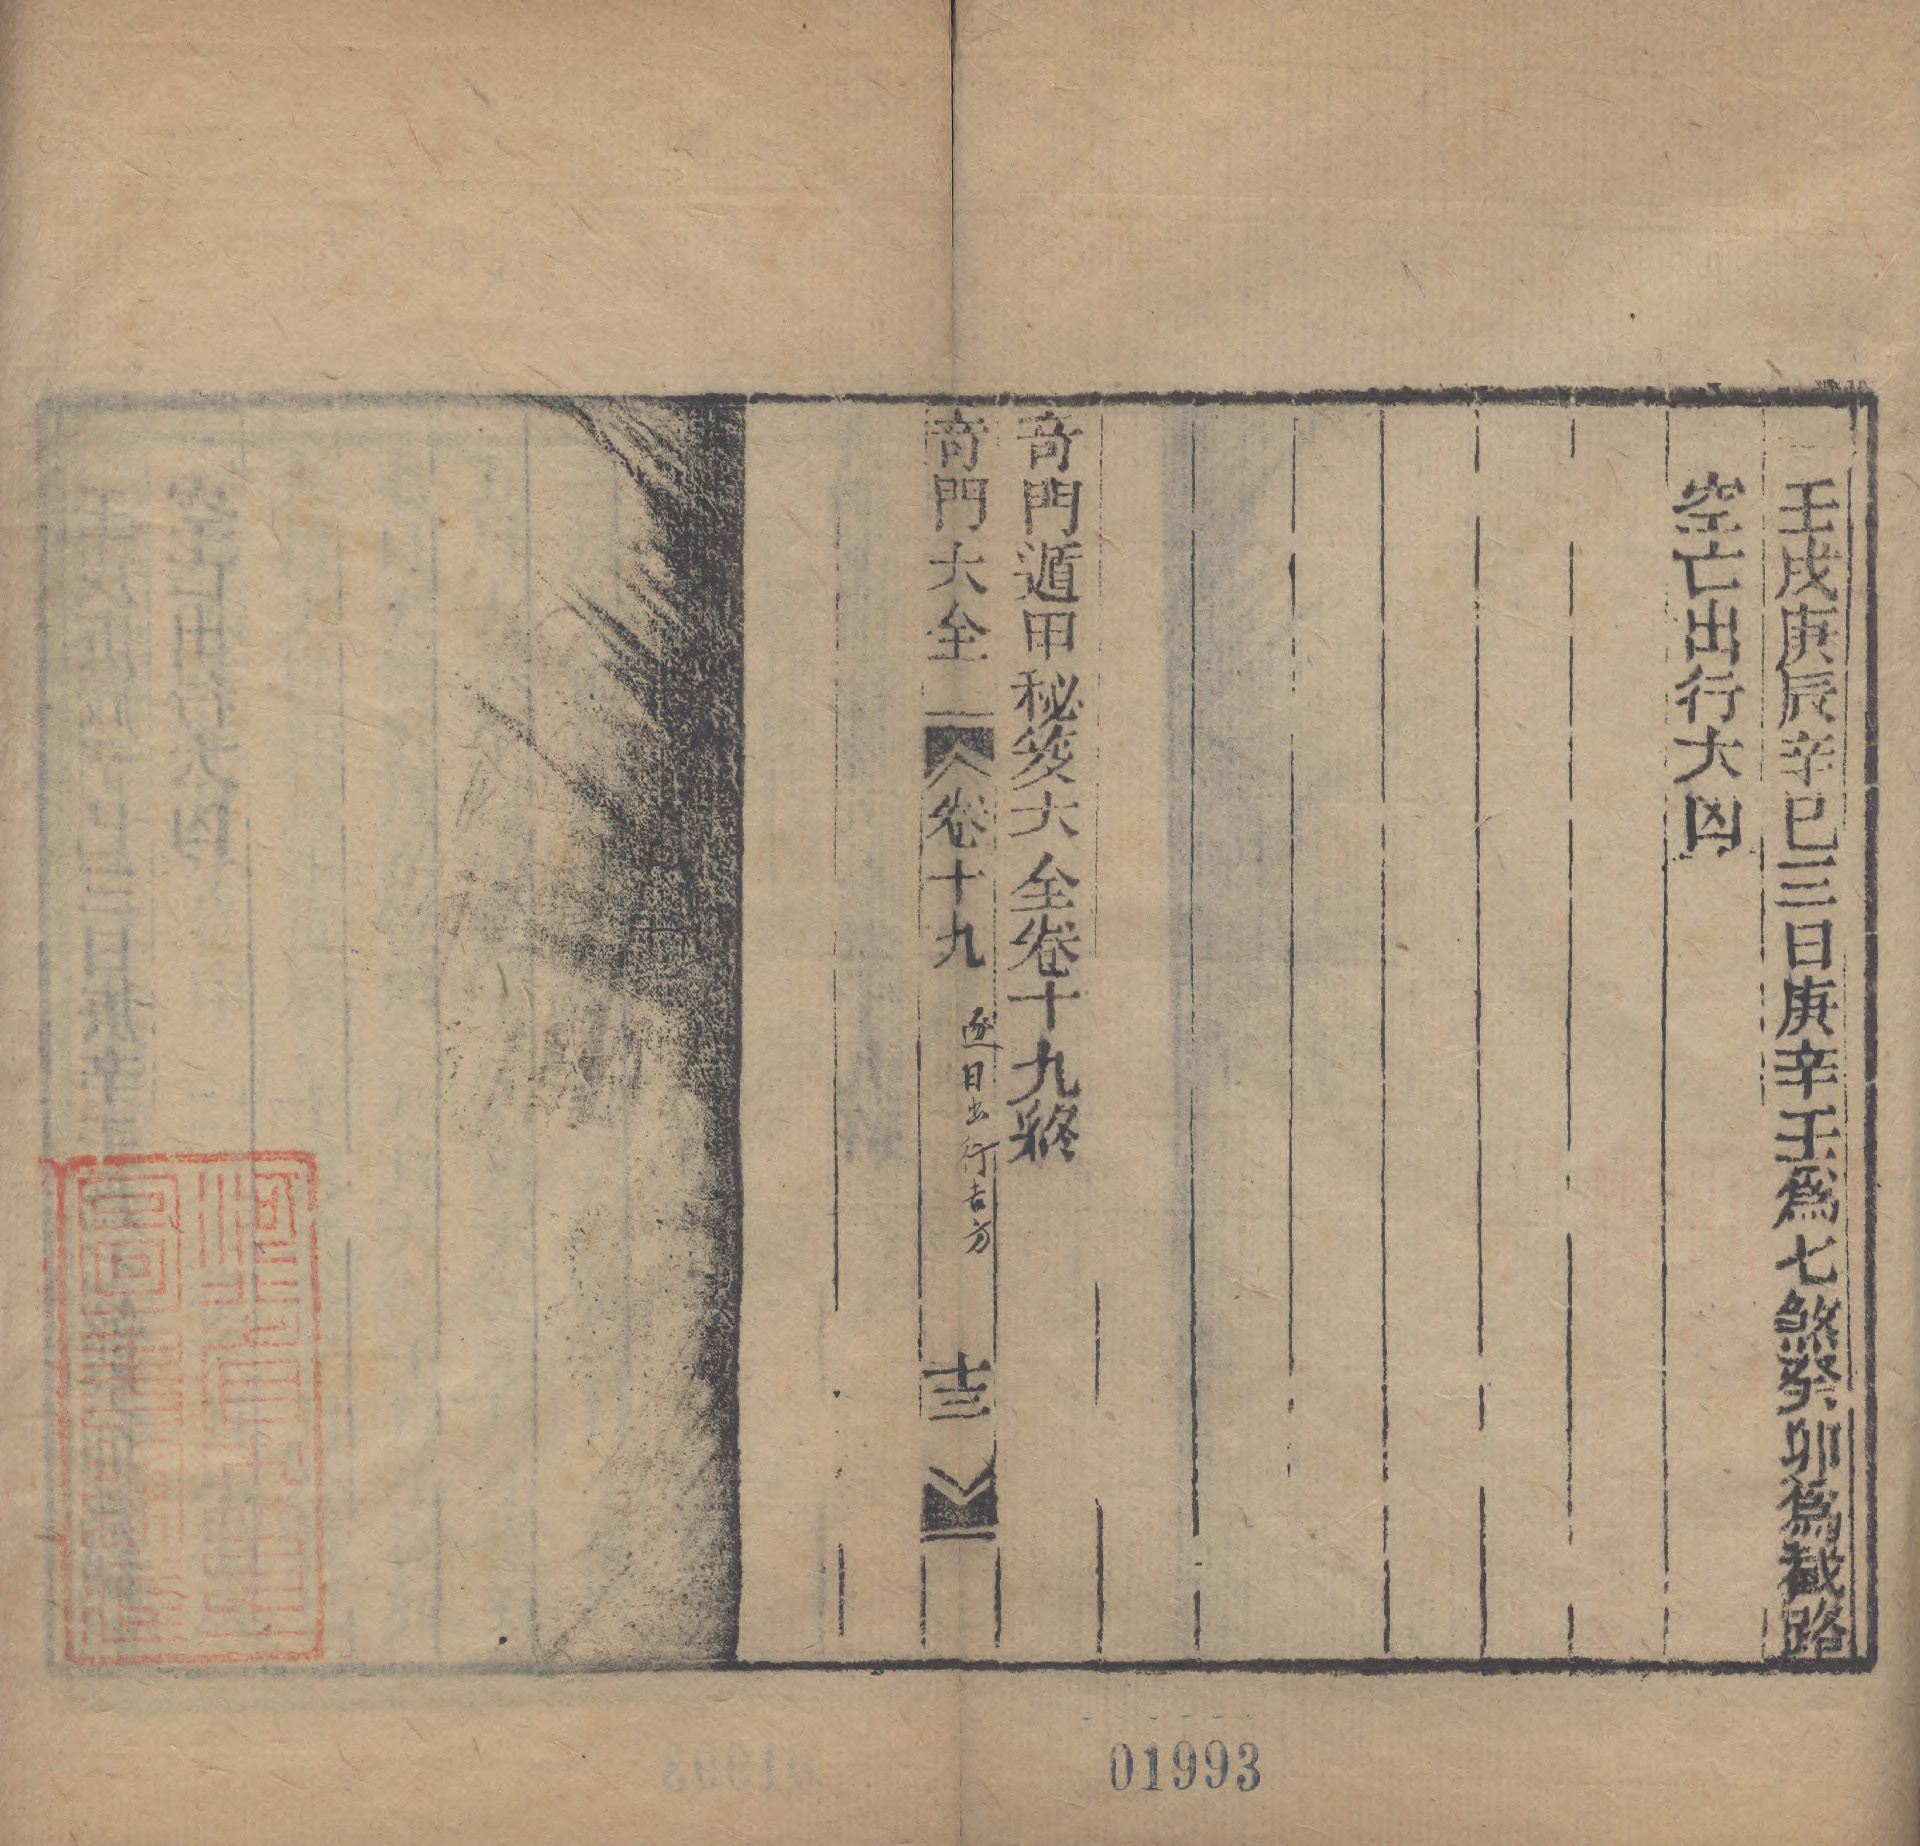 壬戌庚辰辛巳三日庚辛壬爲七煞癸卯爲截路
空亡出行大凶
奇門遁甲秘笈大全卷十九終
奇門大全
卷十九
逐日出行吉方
十三
01993